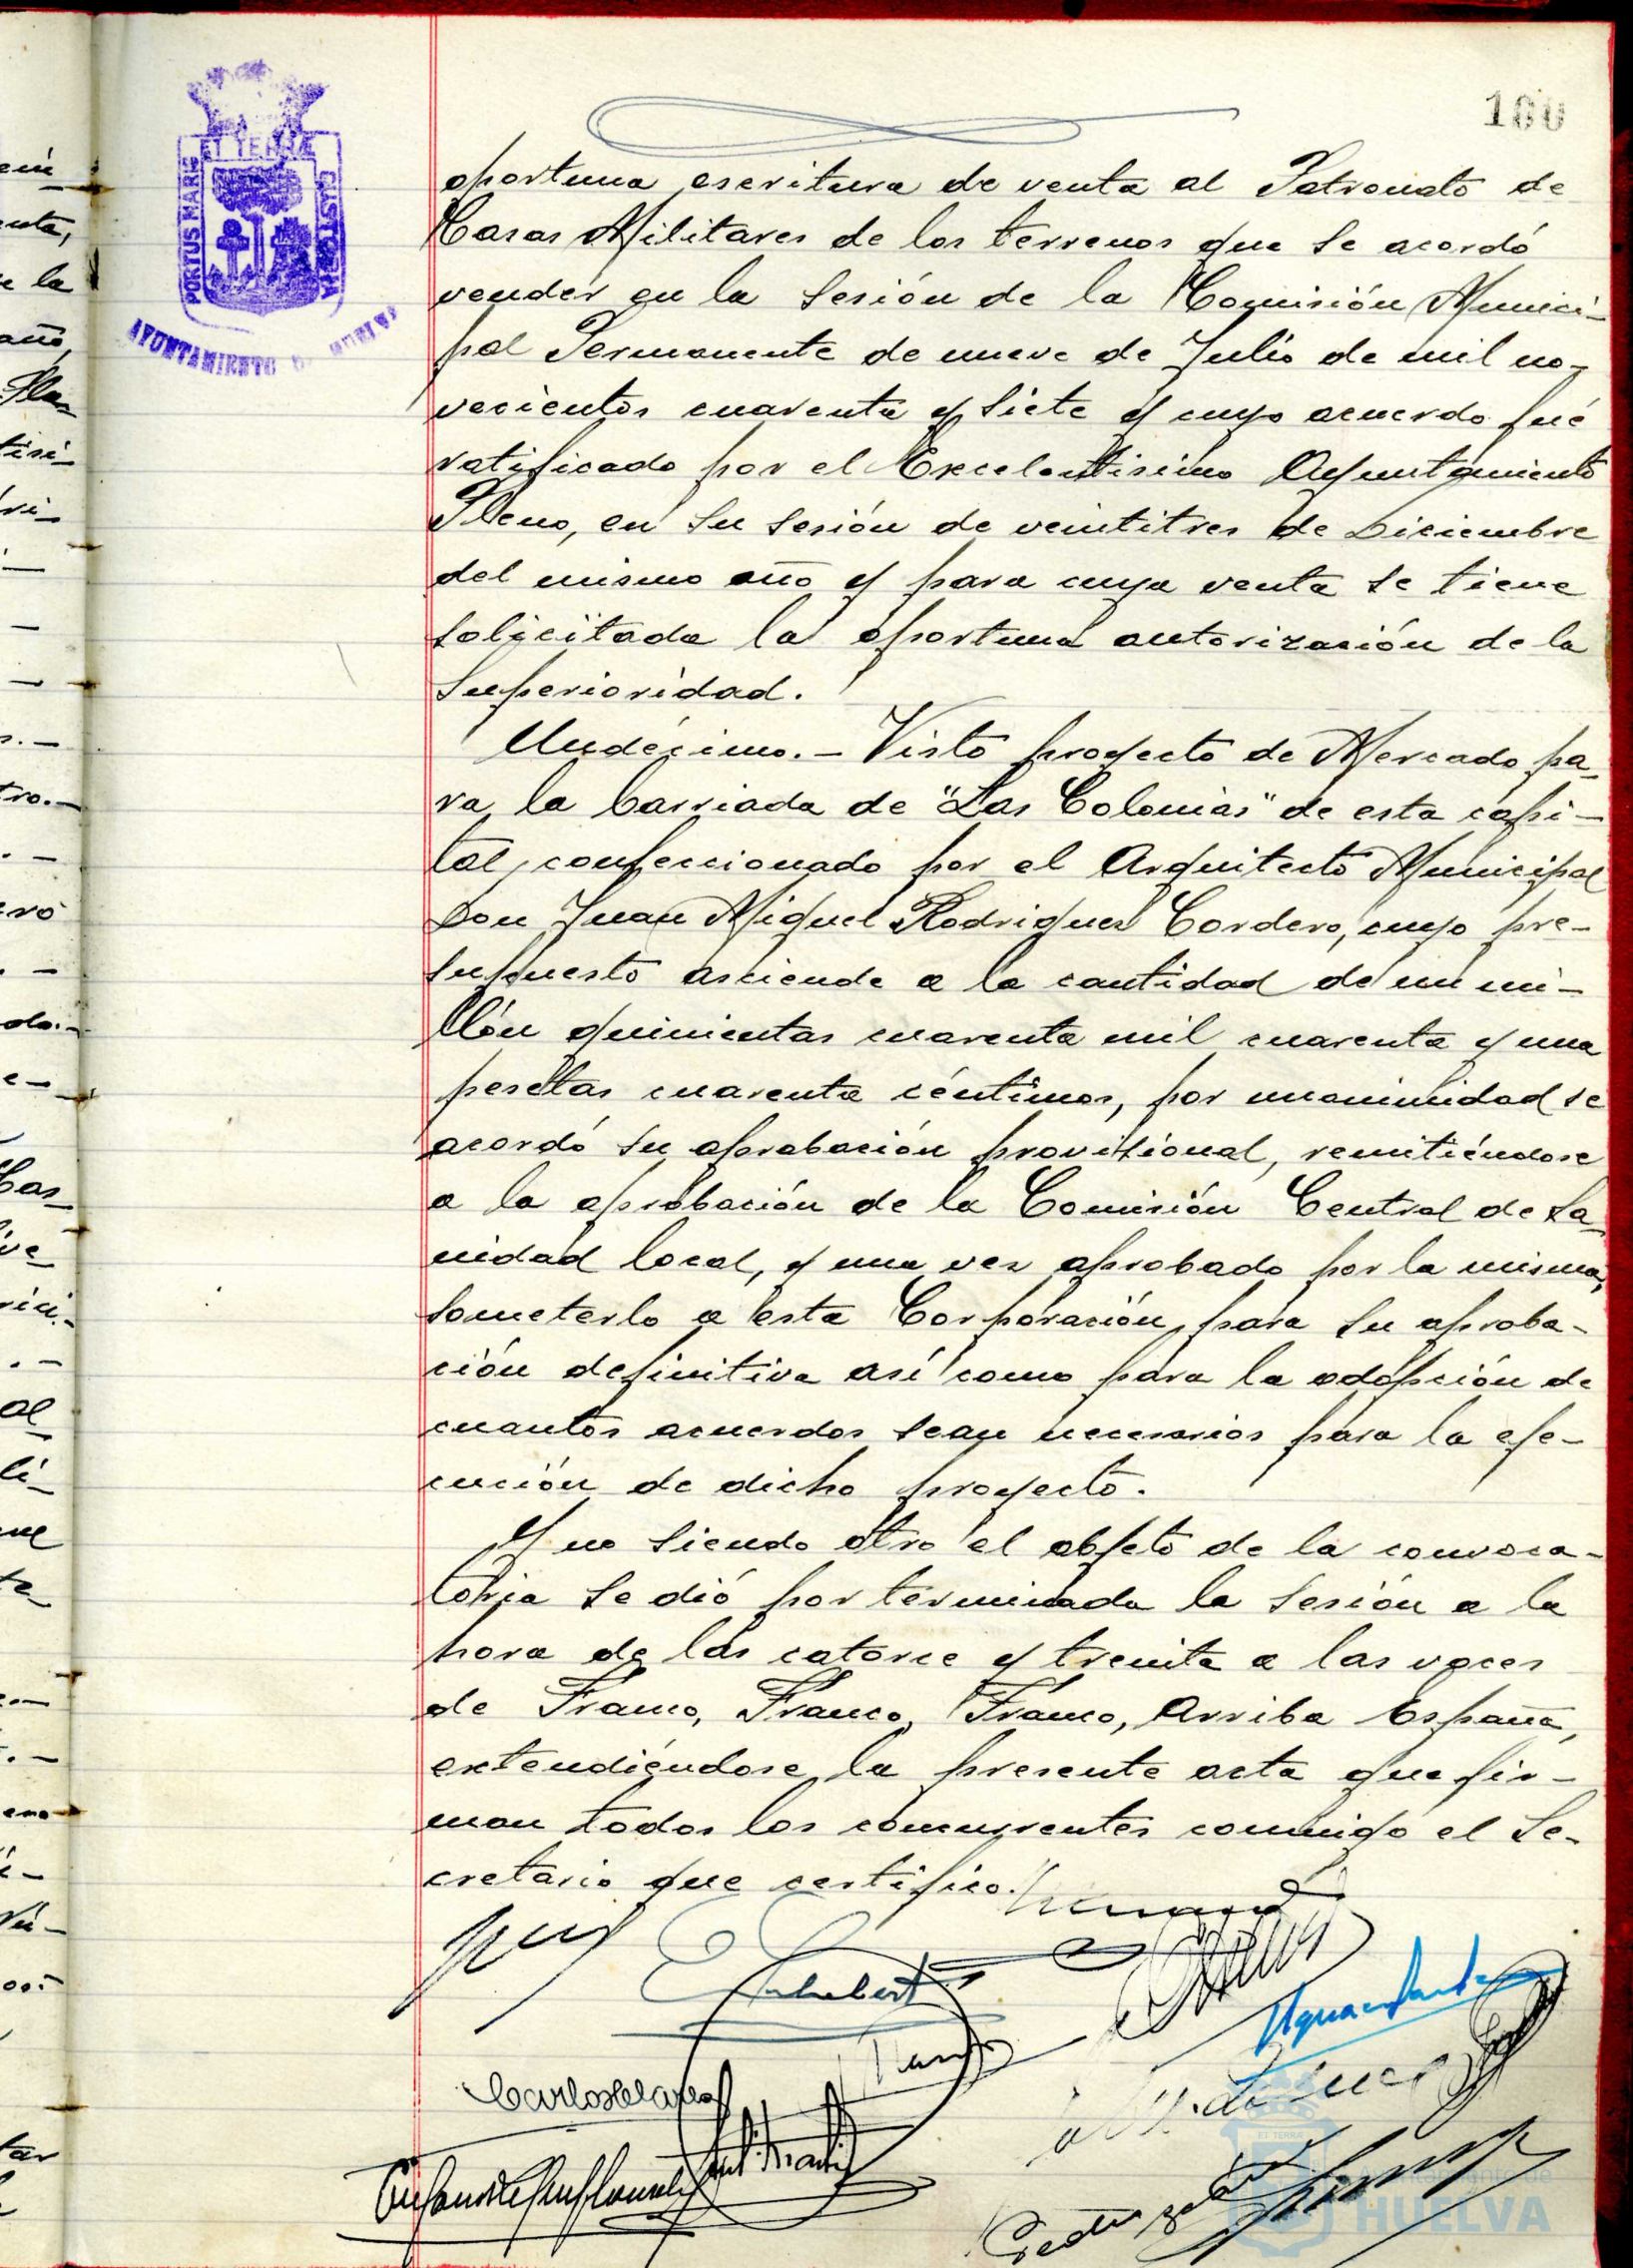 100
PORTUS MARIS ET TERRÆ CUSTODIA
AYUNTAMIENTO DE HUELVA
oportuna escritura de venta al Patronato de
Casas Militares de los terrenos que se acordó
vender en la Sesión de la Comisión Munici-
pal Permanente de nueve de Julio de mil no-
vecientos cuarenta y siete y cuyo acuerdo fué
ratificado por el Excelentisimo Ayuntamiento
Pleno, en su sesión de veintitres de Diciembre
del mismo año y para cuya venta se tiene
solicitada la oportuna autorización de la
Superioridad.
Undécimo.- Visto proyecto de Mercado pa-
ra la barriada de "Las Colonias" de esta capi-
tal, confeccionado por el Arquitecto Municipal
Don Juan Miguel Rodriguez Cordero, cuyo pre-
supuesto asciende a la cantidad de un mi-
llón quinientas cuarenta mil cuarenta y una
pesetas cuarenta céntimos, por unanimidad se
acordó su aprobación provisional, remitiéndose
a la aprobación de la Comisión Central de Sa-
nidad local, y una vez aprobado por la misma,
someterlo a esta Corporación para su aproba-
ción definitiva así como para la adopción de
cuantos acuerdos sean necesarios para la eje-
cución de dicho proyecto.
Y no siendo otro el objeto de la convoca-
toria se dió por terminada la sesión a la
hora de las catorce y treinta a las voces
de Franco, Franco, Franco, Arriba España,
extendiéndose la presente acta que fir-
man todos los concurrentes conmigo el Se-
cretario que certifico.
HUELVA